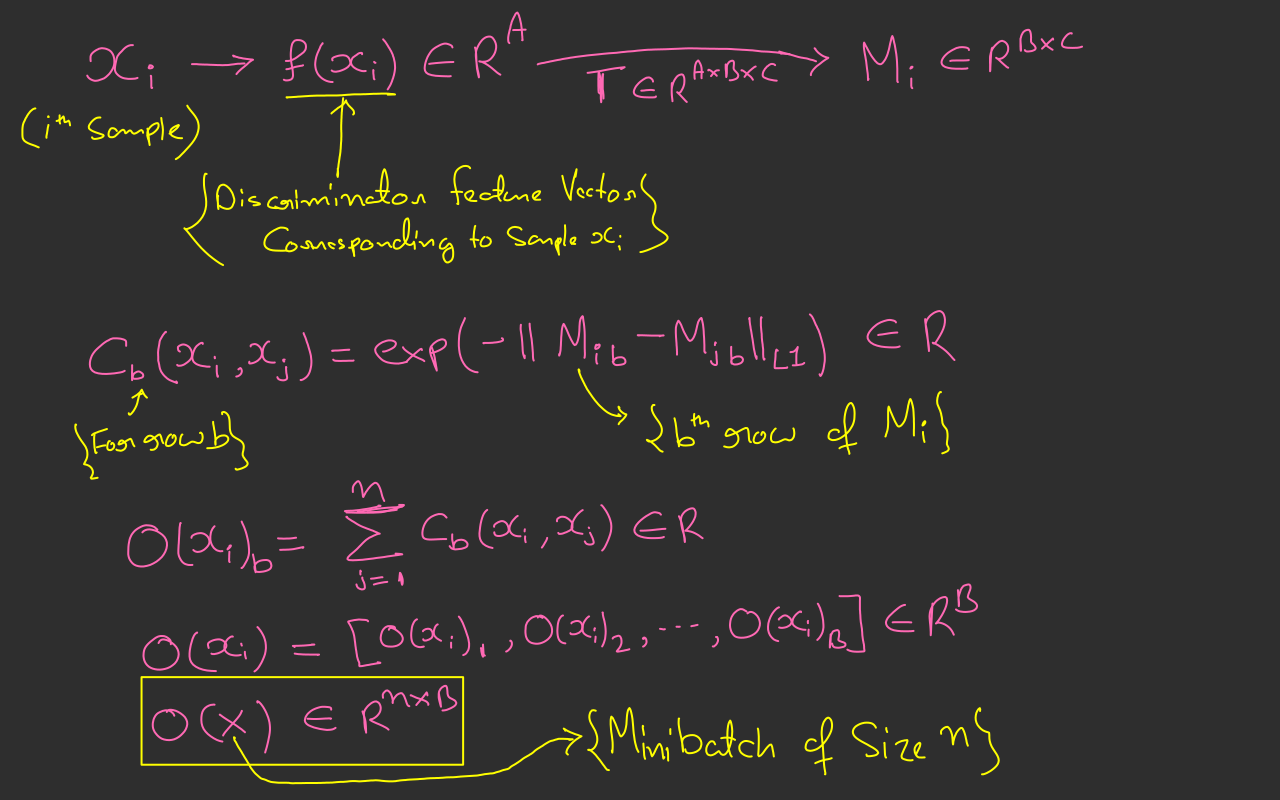 xᵢ → f(xᵢ) ∈ R^A → Mᵢ ∈ R^{B×C}
T ∈ R^{A×B×C}
(iᵗʰ Sample)
{Discriminator feature Vector
Corresponding to Sample xᵢ}
C_b(xᵢ, xⱼ) = exp(-||M_{ib} - M_{jb}||_{L1}) ∈ R
{For row b}
{bᵗʰ row of Mᵢ}
O(xᵢ)_b = Σ_{j=1}^{n} C_b(xᵢ, xⱼ) ∈ R
O(xᵢ) = [O(xᵢ)₁, O(xᵢ)₂, ..., O(xᵢ)_B] ∈ R^B
O(X) ∈ R^{n×B}
{Minibatch of Size n}